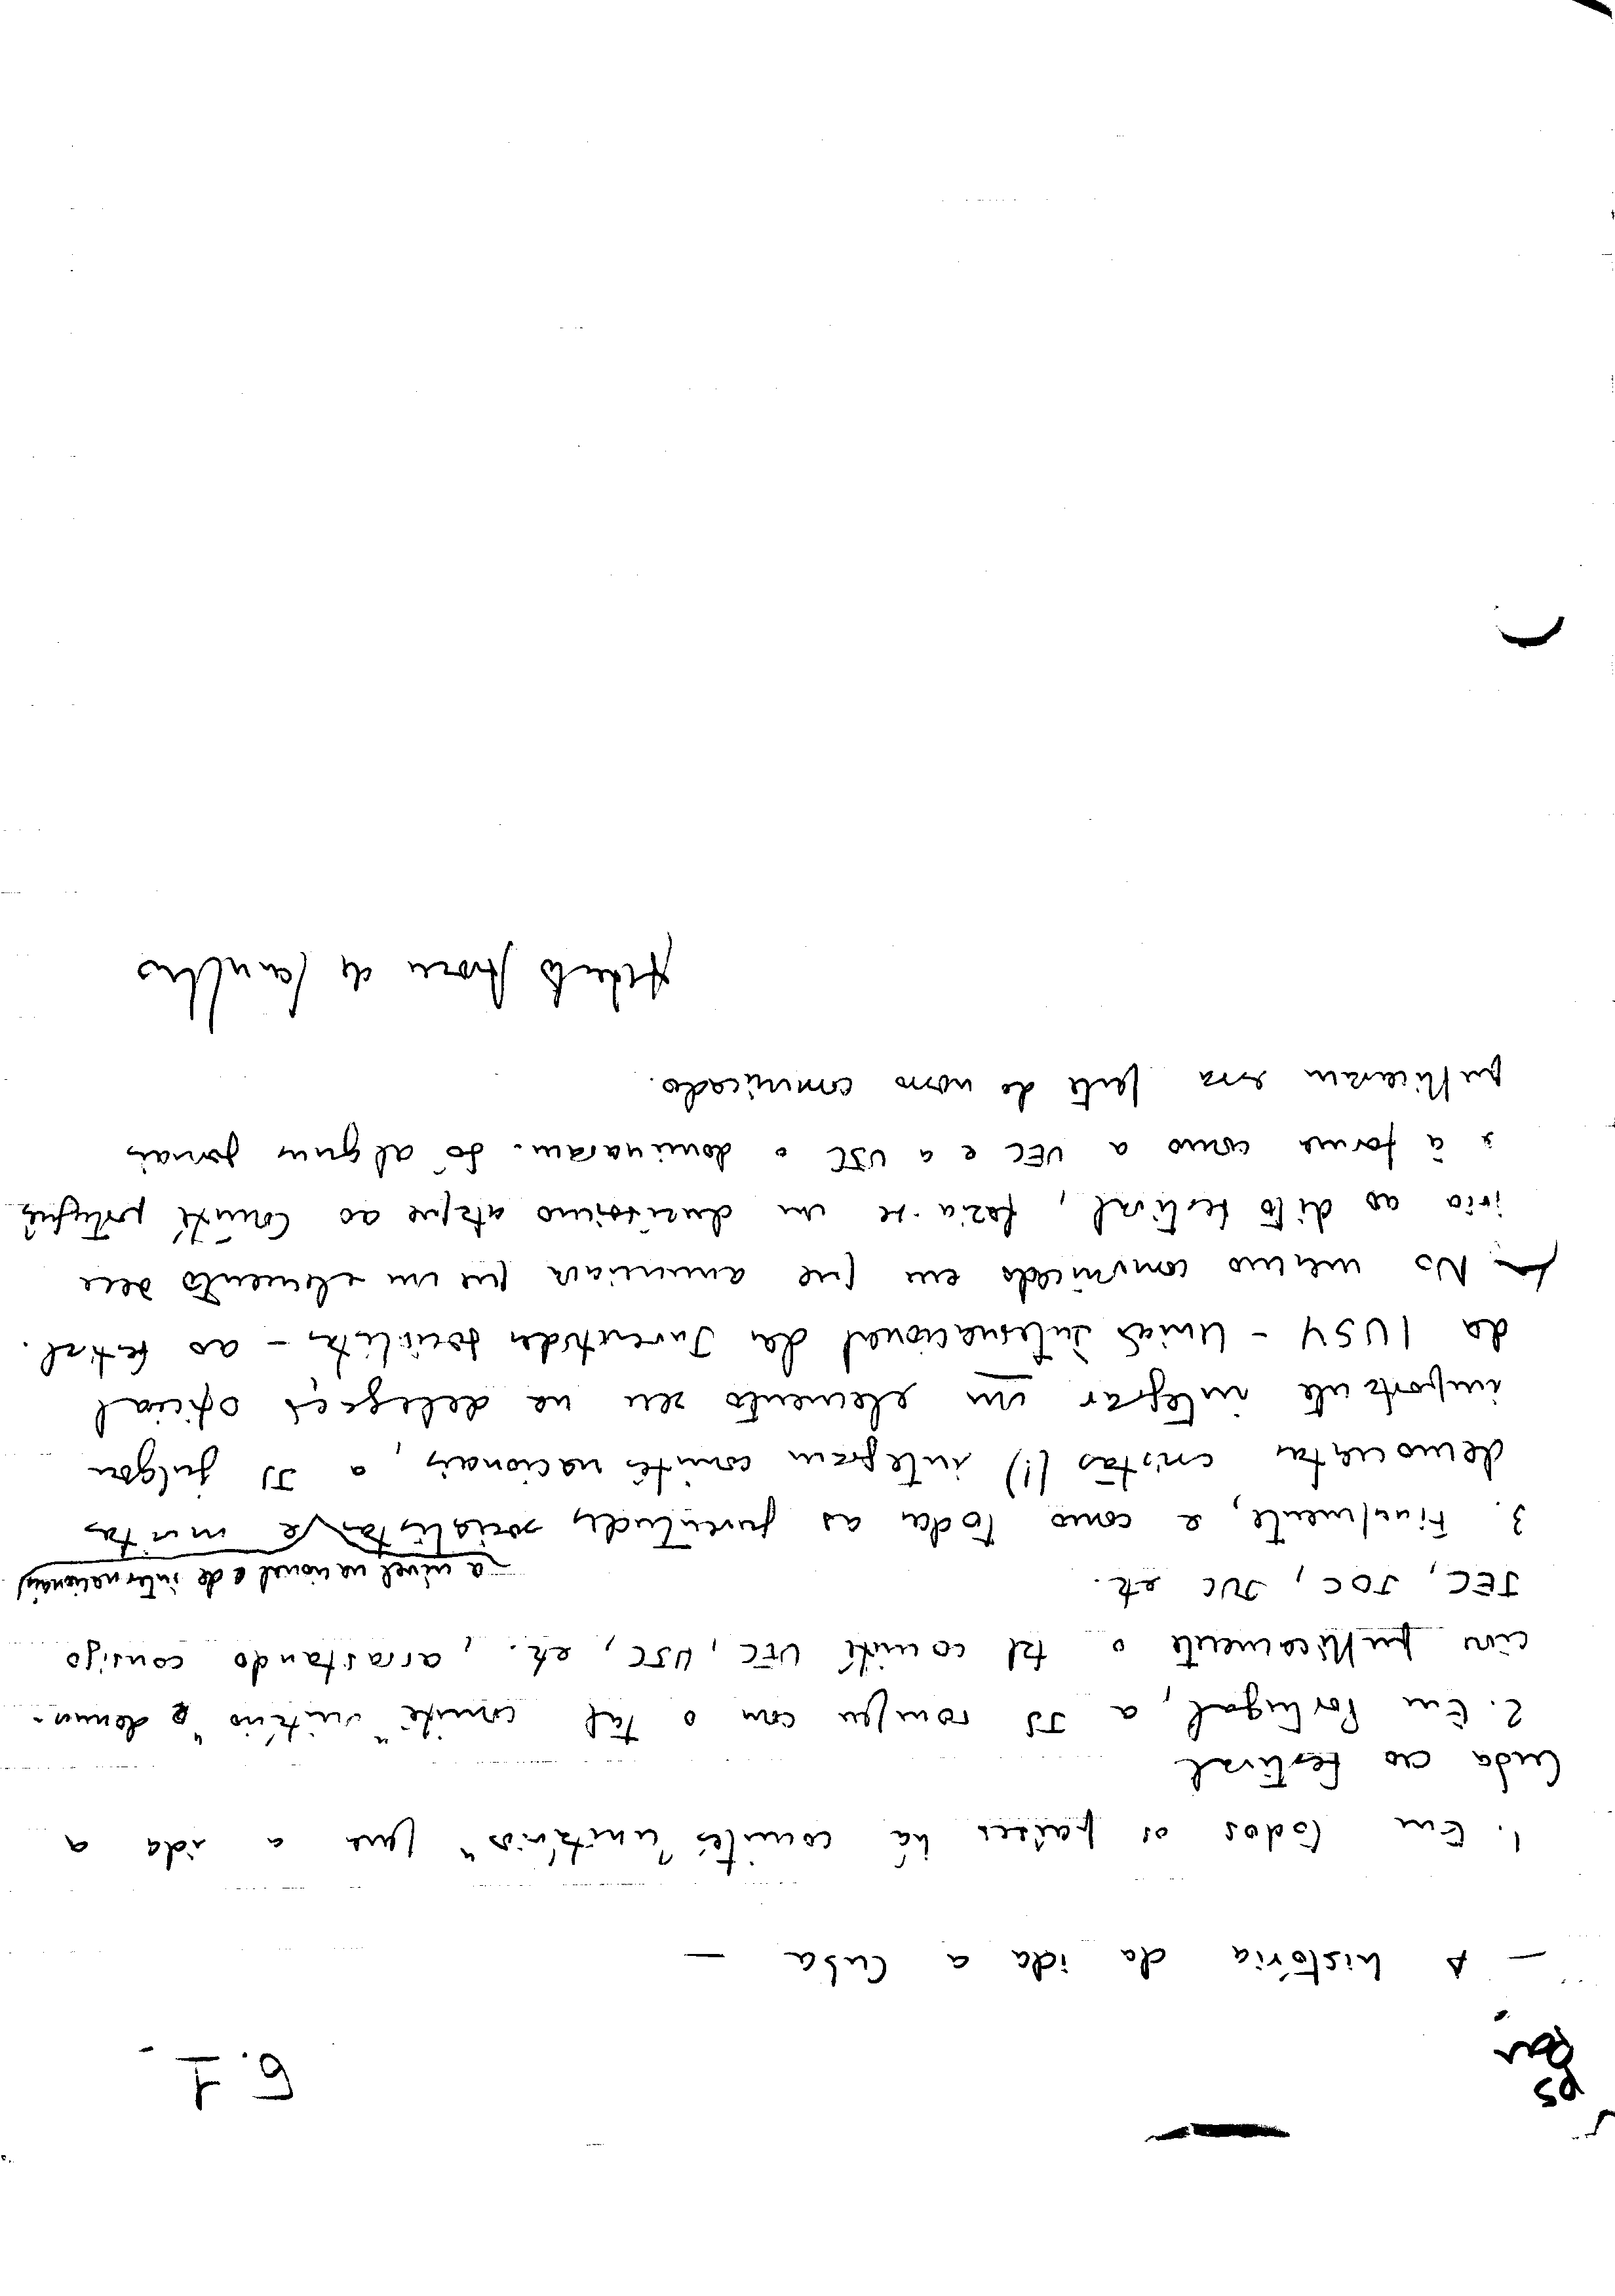 PS
Par
6.1 -
— A história da ida a Cuba —
1. Em todos os países há comités "unitários" para a ida a
Cuba ao Festival
2. Em Portugal, a JS rompeu com o tal comité "unitário" e denun-
ciou publicamente o tal comité UEC, USC, etc., arrastando consigo
JEC, JOC, JUC etc.
a nível nacional e de internacionais
3. Finalmente, e como todas as juventudes socialistas e muitas
democratas cristãs (!) integram comités nacionais, a JS julgou
importante integrar um elemento seu na delegação oficial
da IUSY - União internacional das Juventudes socialistas - ao festival.
No mesmo comunicado em que anunciava que um elemento seu
iria ao dito festival, fazia-se um duríssimo ataque ao Comité português
e à forma como a UEC e a USC o dominaram. Só alguns jornais
publicaram essa parte do nosso comunicado.
Alberto de Carvalho